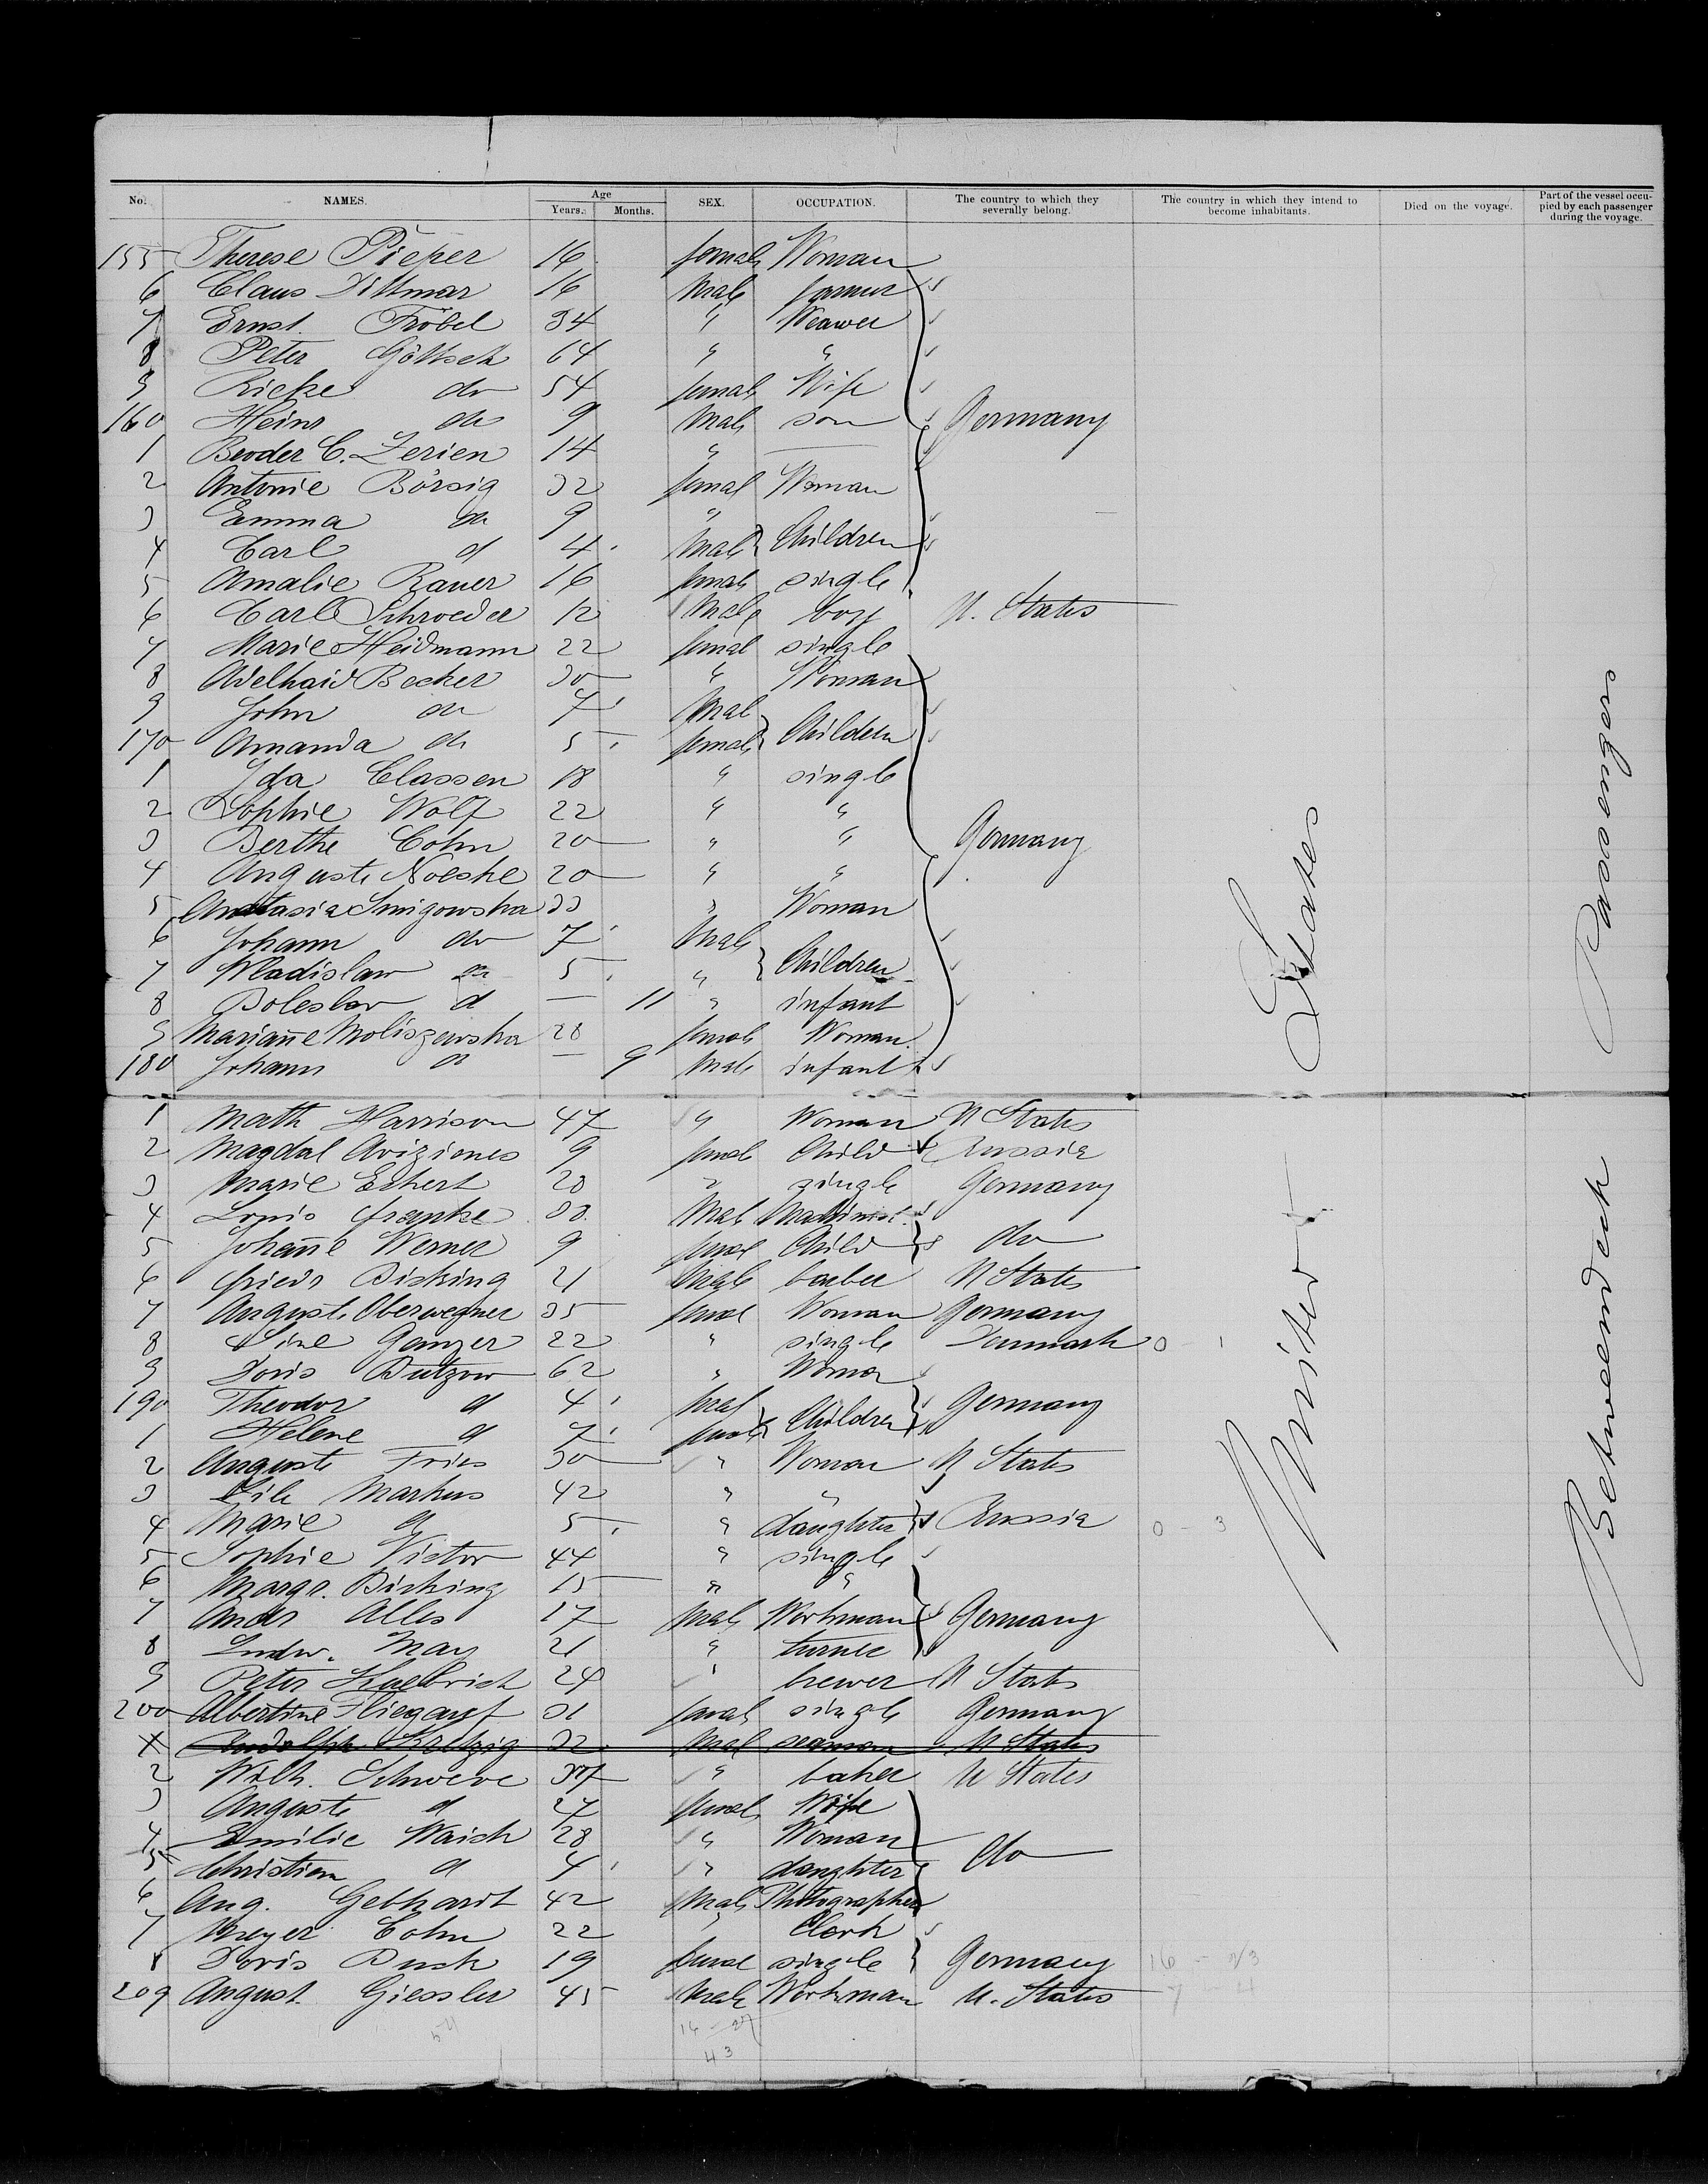 No. NAMES. Age Years. Months. SEX. OCCUPATION. The country to which they severally belong. The country in which they intend to become inhabitants. Died on the voyage. Part of the vessel occupied by each passenger during the voyage.
155 Therese Pieper 16 female Woman
6 Claus Dittmar 16 Male farmer
7 Ernst. Fröbel 34 " Weawer
8 Peter Göttsch 64 " "
9 Rieke do 54 female Wife
160 Heinr do 9 Male son Germany
1 Beoder C. Zerien 14 "
2 Antonie Börsig 32 femal Woman
3 Emma do 9 "
4 Carl d 4 Male Children
5 Amalie Bauer 16 female single
6 Carl Schroeder 12 Male boy U. States
7 Marie Heidmann 22 femal single
8 Adelhaid Becker 30 " Woman
9 John do 7 Mal
170 Amanda do 5 female Children
1 Ida Classen 18 " single
2 Sophie Wolf 22 " "
3 Berthe Cohn 20 " " Germany
4 Auguste Noeske 20 " "
5 Anastasia Smigowska 33 " Woman
6 Johann do 7 Male
7 Wladislaw do 5 " Children
8 Boleslav d — 11 " infant
9 Marianne Moliszewska 28 female Woman
180 Johann d — 9 Male infant
1 Math Harrison 47 " Woman U States
2 Magdal Aviziones 9 female Child Russia
3 Marie Eckert 28 " single Germany
4 Louis Franke 33 Male Machinist
5 Johanne Werner 9 femal Child do
6 Friedr Bicking 21 Male barber U States
7 Auguste Oberwegner 35 femal Woman Germany
8 Line Ganzer 22 " single Denmark 0 - 1
9 Doris Butzow 62 " Woman
190 Theodor d 4 Mal Germany
1 Helene d 7 female Children
2 Auguste Fries 30 " Woman U States
3 Lile Markus 42 " "
4 Marie d 5 " daughter Russia 0 - 3
5 Sophie Victor 44 " single
6 Margr. Bicking 15 " "
7 Andr Alles 17 Male Workman Germany
8 Ludw. May 21 " turner
9 Peter Kuebrich 24 " brewer U States
200 Albertine Fliegauf 31 female single Germany
X Rudolph Kretzig 32 Mal seaman U States
2 Wilh. Schweve 37 " baker U States
3 Auguste d 27 female Wife
4 Emilie Waich 28 " Woman
5 Christian d 4 " daughter do
6 Aug. Gebhardt 42 Male Photographer
7 Meyer Cohn 22 " Clerk
8 Doris Busk 19 femal single Germany 16 - 23
209 August. Giessler 45 Male Workman U. States 7 - 4
16 - 27
43
United States
Betweendeck Passengers